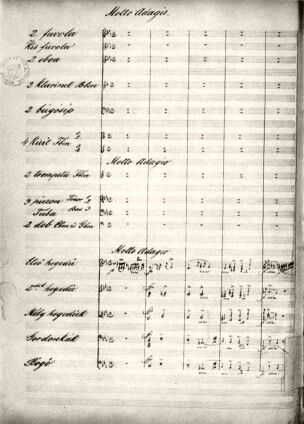 Molto Adagio.
2 fuvola
Kis fuvola
2 oboa
2 klarinet B ben
2 búgósip
4 kürt F ben
Molto Adagio
2 trombita
3 puzon Tenor 1/2
Bas 3
Tuba
2 dob
Molto Adagio
Első hegedü
2 hegedü
Mély hegedük
Gordonkák
Bőgő